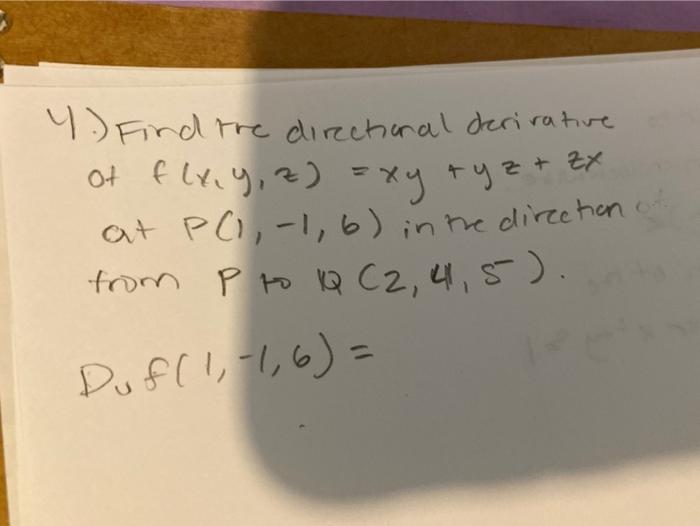 4.) Find the directional derivative
of f(x, y, z) = xy + yz + zx
at P(1, -1, 6) in the direction of
from P to Q (2, 4, 5).
Duf(1, -1, 6) =